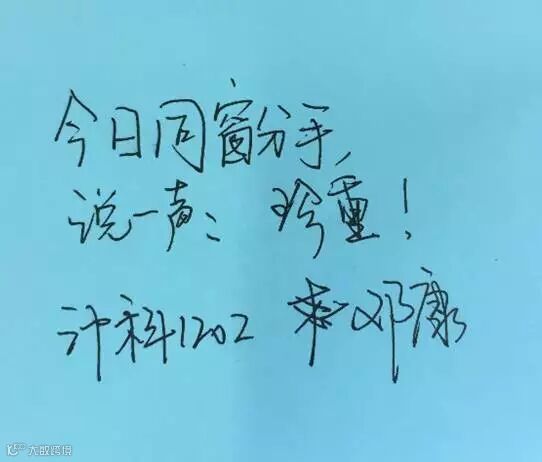 今日同窗分手,
说一声: 珍重!
计科1202 邓康
大数跨境